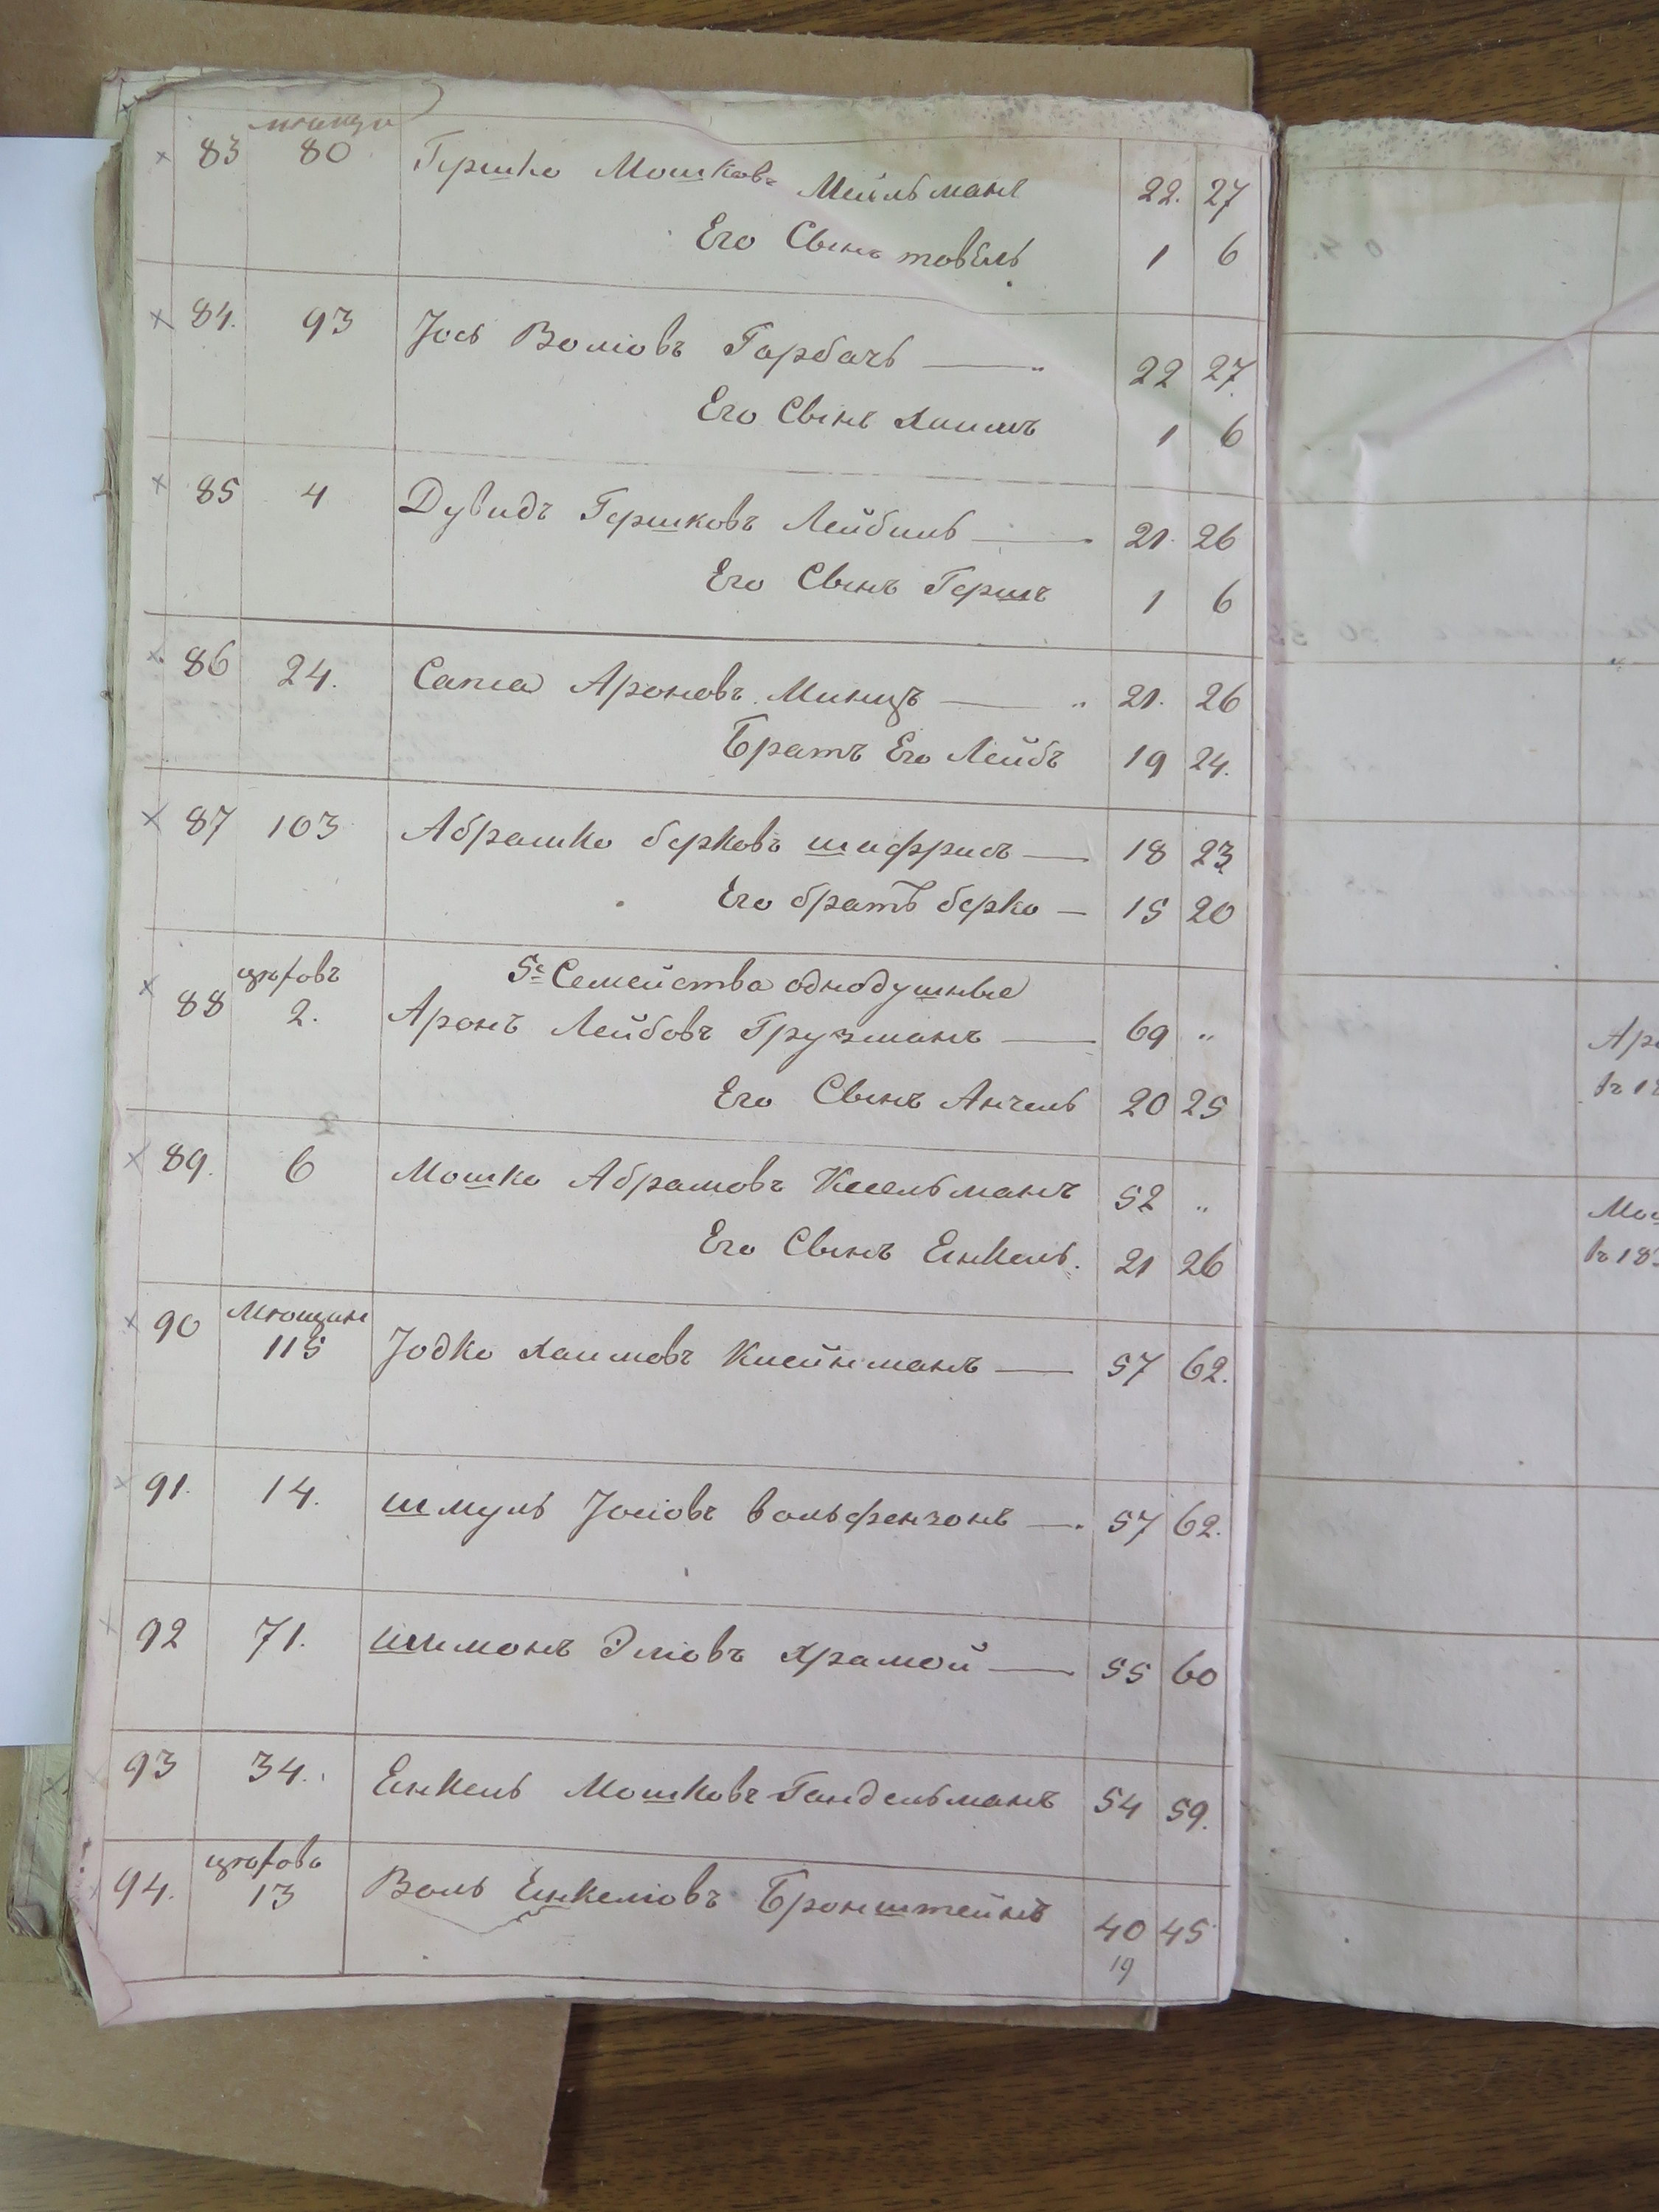 мѣщан
83 80 Гершко Мошковъ Мейльманъ 22. 27
Его Сынъ товель 1 6
84. 93 Іось Воліовъ Горбачъ 22 27
Его Сынъ Хаимъ 1 6
85 4 Дувидъ Гершковъ Лейбиль 21. 26
Его Сынъ Гершъ 1 6
86 24. Сапса Ароновъ Миницъ 21. 26
Братъ Его Лейбъ 19 24.
87 103 Абрашко берковъ шафрисъ 18 23
Его братъ берко 15 20
цѣховъ 5е Семейства однодушные
88 2. Аронъ Лейбовъ Грузманъ 69 "
Его Сынъ Анчель 20 25
89. 6 Мошко Абрамовъ Кесельманъ 52 "
Его Сынъ Енкель. 21 26
90 мѣщан
115 Іодко Хаимовъ Клейнманъ 57 62.
91. 14. шмуль Іосіовъ вольфензонъ 57 62.
92 71. шимонъ Эліовъ Храмой 55 60
93 34. Енкель Мошковъ Гандельманъ 54 59.
цѣховъ
94. 13 Воль Енкеліовъ Бронштейнъ 40 45
19
Мош